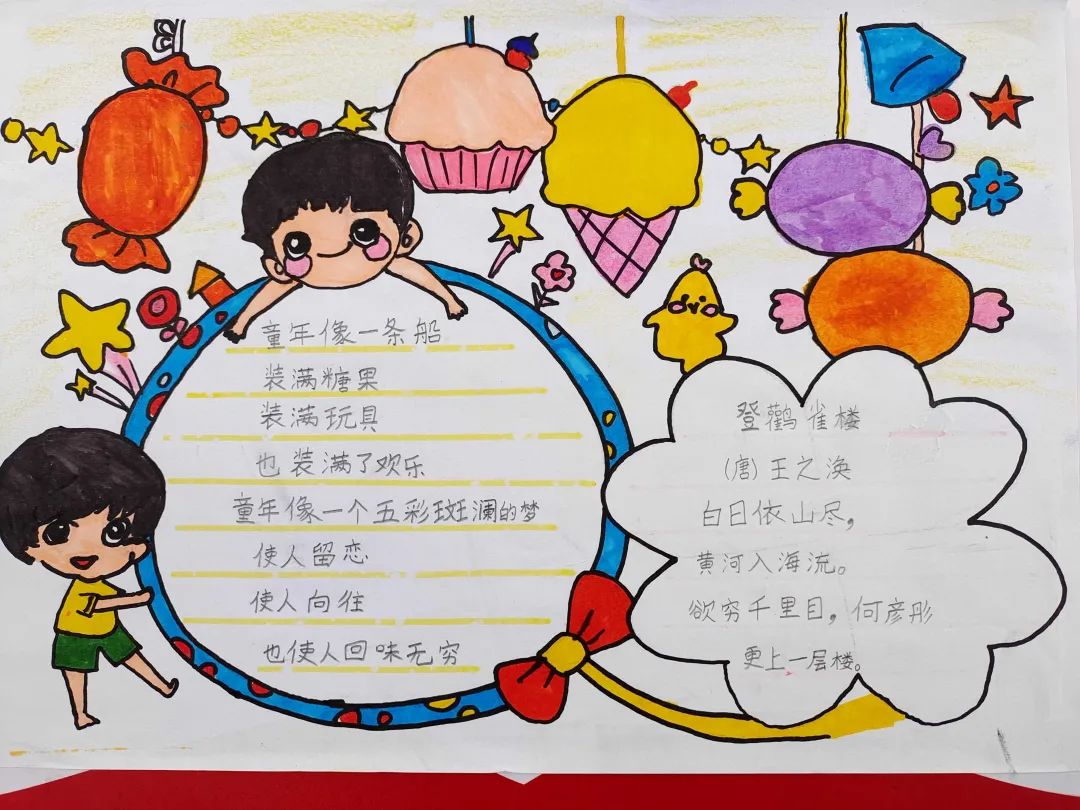 童年像一条船
装满糖果
装满玩具
也装满了欢乐
童年像一个五彩斑澜的梦
使人留恋
使人向往
也使人回味无穷
登鹳雀楼
(唐)王之涣
白日依山尽，
黄河入海流。
欲穷千里目，何彦彤
更上一层楼。